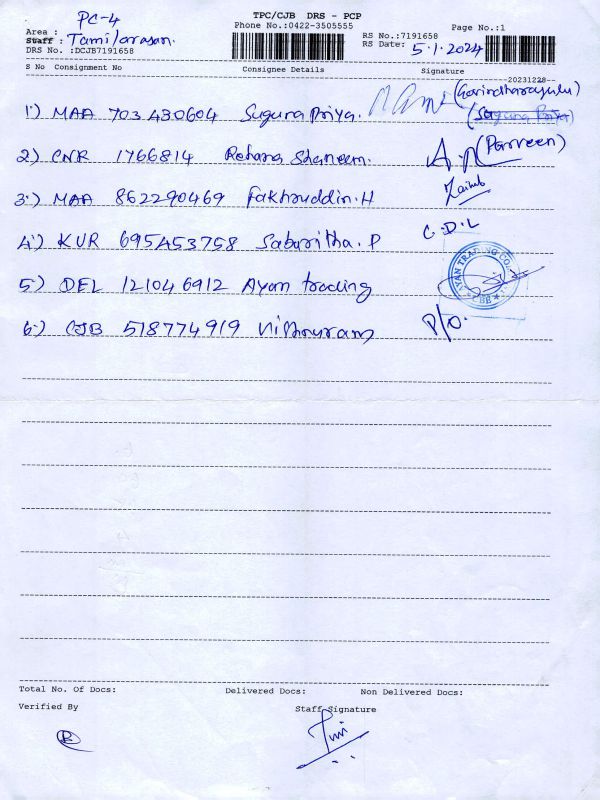 TPC/CJB DRS - PCP
PC-4
Phone No.:0422-3505555
Page No.:1
Area :
Staff : Tamilarasan.
RS No.:7191658
DRS No. :DCJB7191658
RS Date: 5.1.2024
S No Consignment No Consignee Details Signature
20231228
1) MAA 703430604 Suguna Priya. (Govindharayulu)
(Suguna Priya)
2) CNR 1766814 Rehana Shaneem. (Parveen)
3) MAA 862290469 Fakhruddin.H Zainb
4) KUR 695453758 Sabaritha.P C.D.L
5) DEL 121046912 Ayan trading AYAN TRADING CO. CBB
6) CJB 518774919 Vishnuram P/O.
Total No. Of Docs: Delivered Docs: Non Delivered Docs:
Verified By Staff Signature